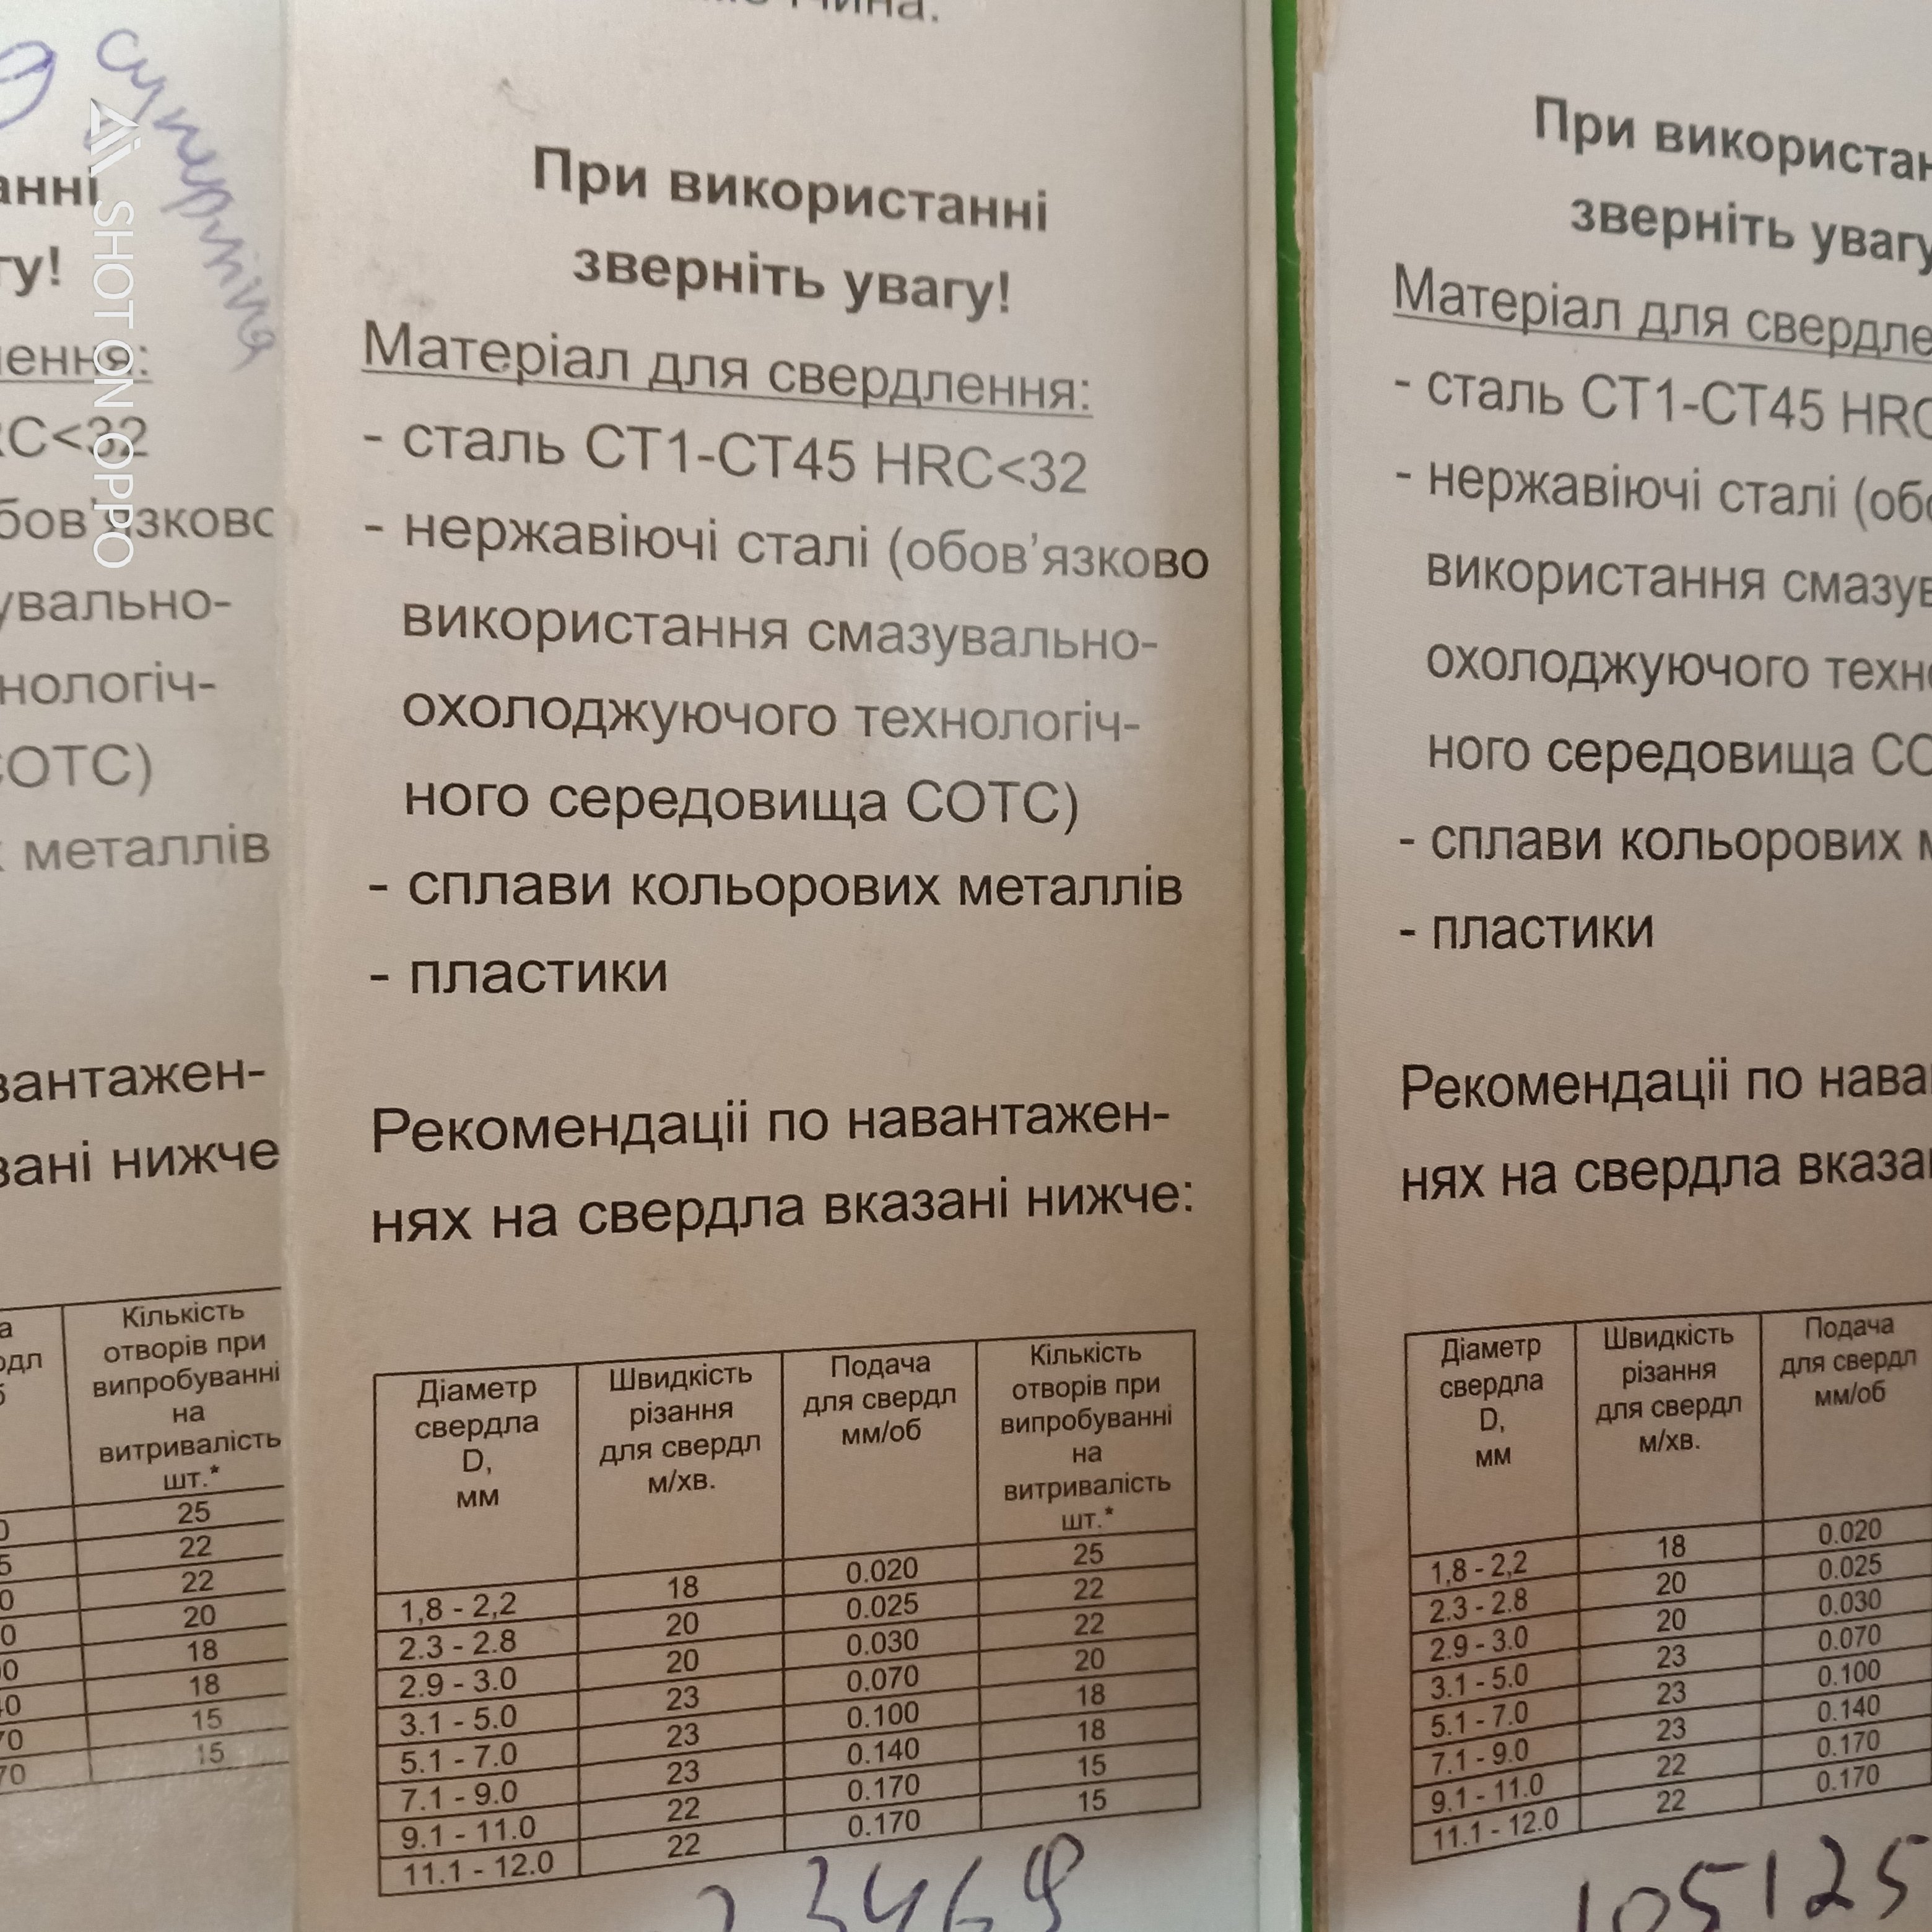 суперлінія
анні
гу!
лення:
RC<32
бов'язково
увально-
нологіч-
СОТС)
х металлів
вантажен-
вані нижче
Кількість
отворів при
випробуванні
на
витривалість
шт.*
25
22
22
20
18
18
15
15
SHOT ON OPPO
При використанні
зверніть увагу!
Матеріал для свердлення:
- сталь СТ1-СТ45 HRC<32
- нержавіючі сталі (обов'язково
використання смазувально-
охолоджуючого технологіч-
ного середовища СОТС)
- сплави кольорових металлів
- пластики
Рекомендаціі по навантажен-
нях на свердла вказані нижче:
Діаметр
свердла
D,
мм
Швидкість
різання
для свердл
м/хв.
Подача
для свердл
мм/об
Кількість
отворів при
випробуванні
на
витривалість
шт.*
1,8 - 2,2 18 0.020 25
2.3 - 2.8 20 0.025 22
2.9 - 3.0 20 0.030 22
3.1 - 5.0 23 0.070 20
5.1 - 7.0 23 0.100 18
7.1 - 9.0 23 0.140 18
9.1 - 11.0 22 0.170 15
11.1 - 12.0 22 0.170 15
23469
При використан
зверніть увагу
Матеріал для свердле
- сталь СТ1-СТ45 HRC
- нержавіючі сталі (обо
використання смазув
охолоджуючого техно
ного середовища СО
- сплави кольорових м
- пластики
Рекомендаціі по нава
нях на свердла вказан
Діаметр
свердла
D,
мм
Швидкість
різання
для свердл
м/хв.
Подача
для свердл
мм/об
1,8 - 2,2 18 0.020
2.3 - 2.8 20 0.025
2.9 - 3.0 20 0.030
3.1 - 5.0 23 0.070
5.1 - 7.0 23 0.100
7.1 - 9.0 23 0.140
9.1 - 11.0 22 0.170
11.1 - 12.0 22 0.170
105125